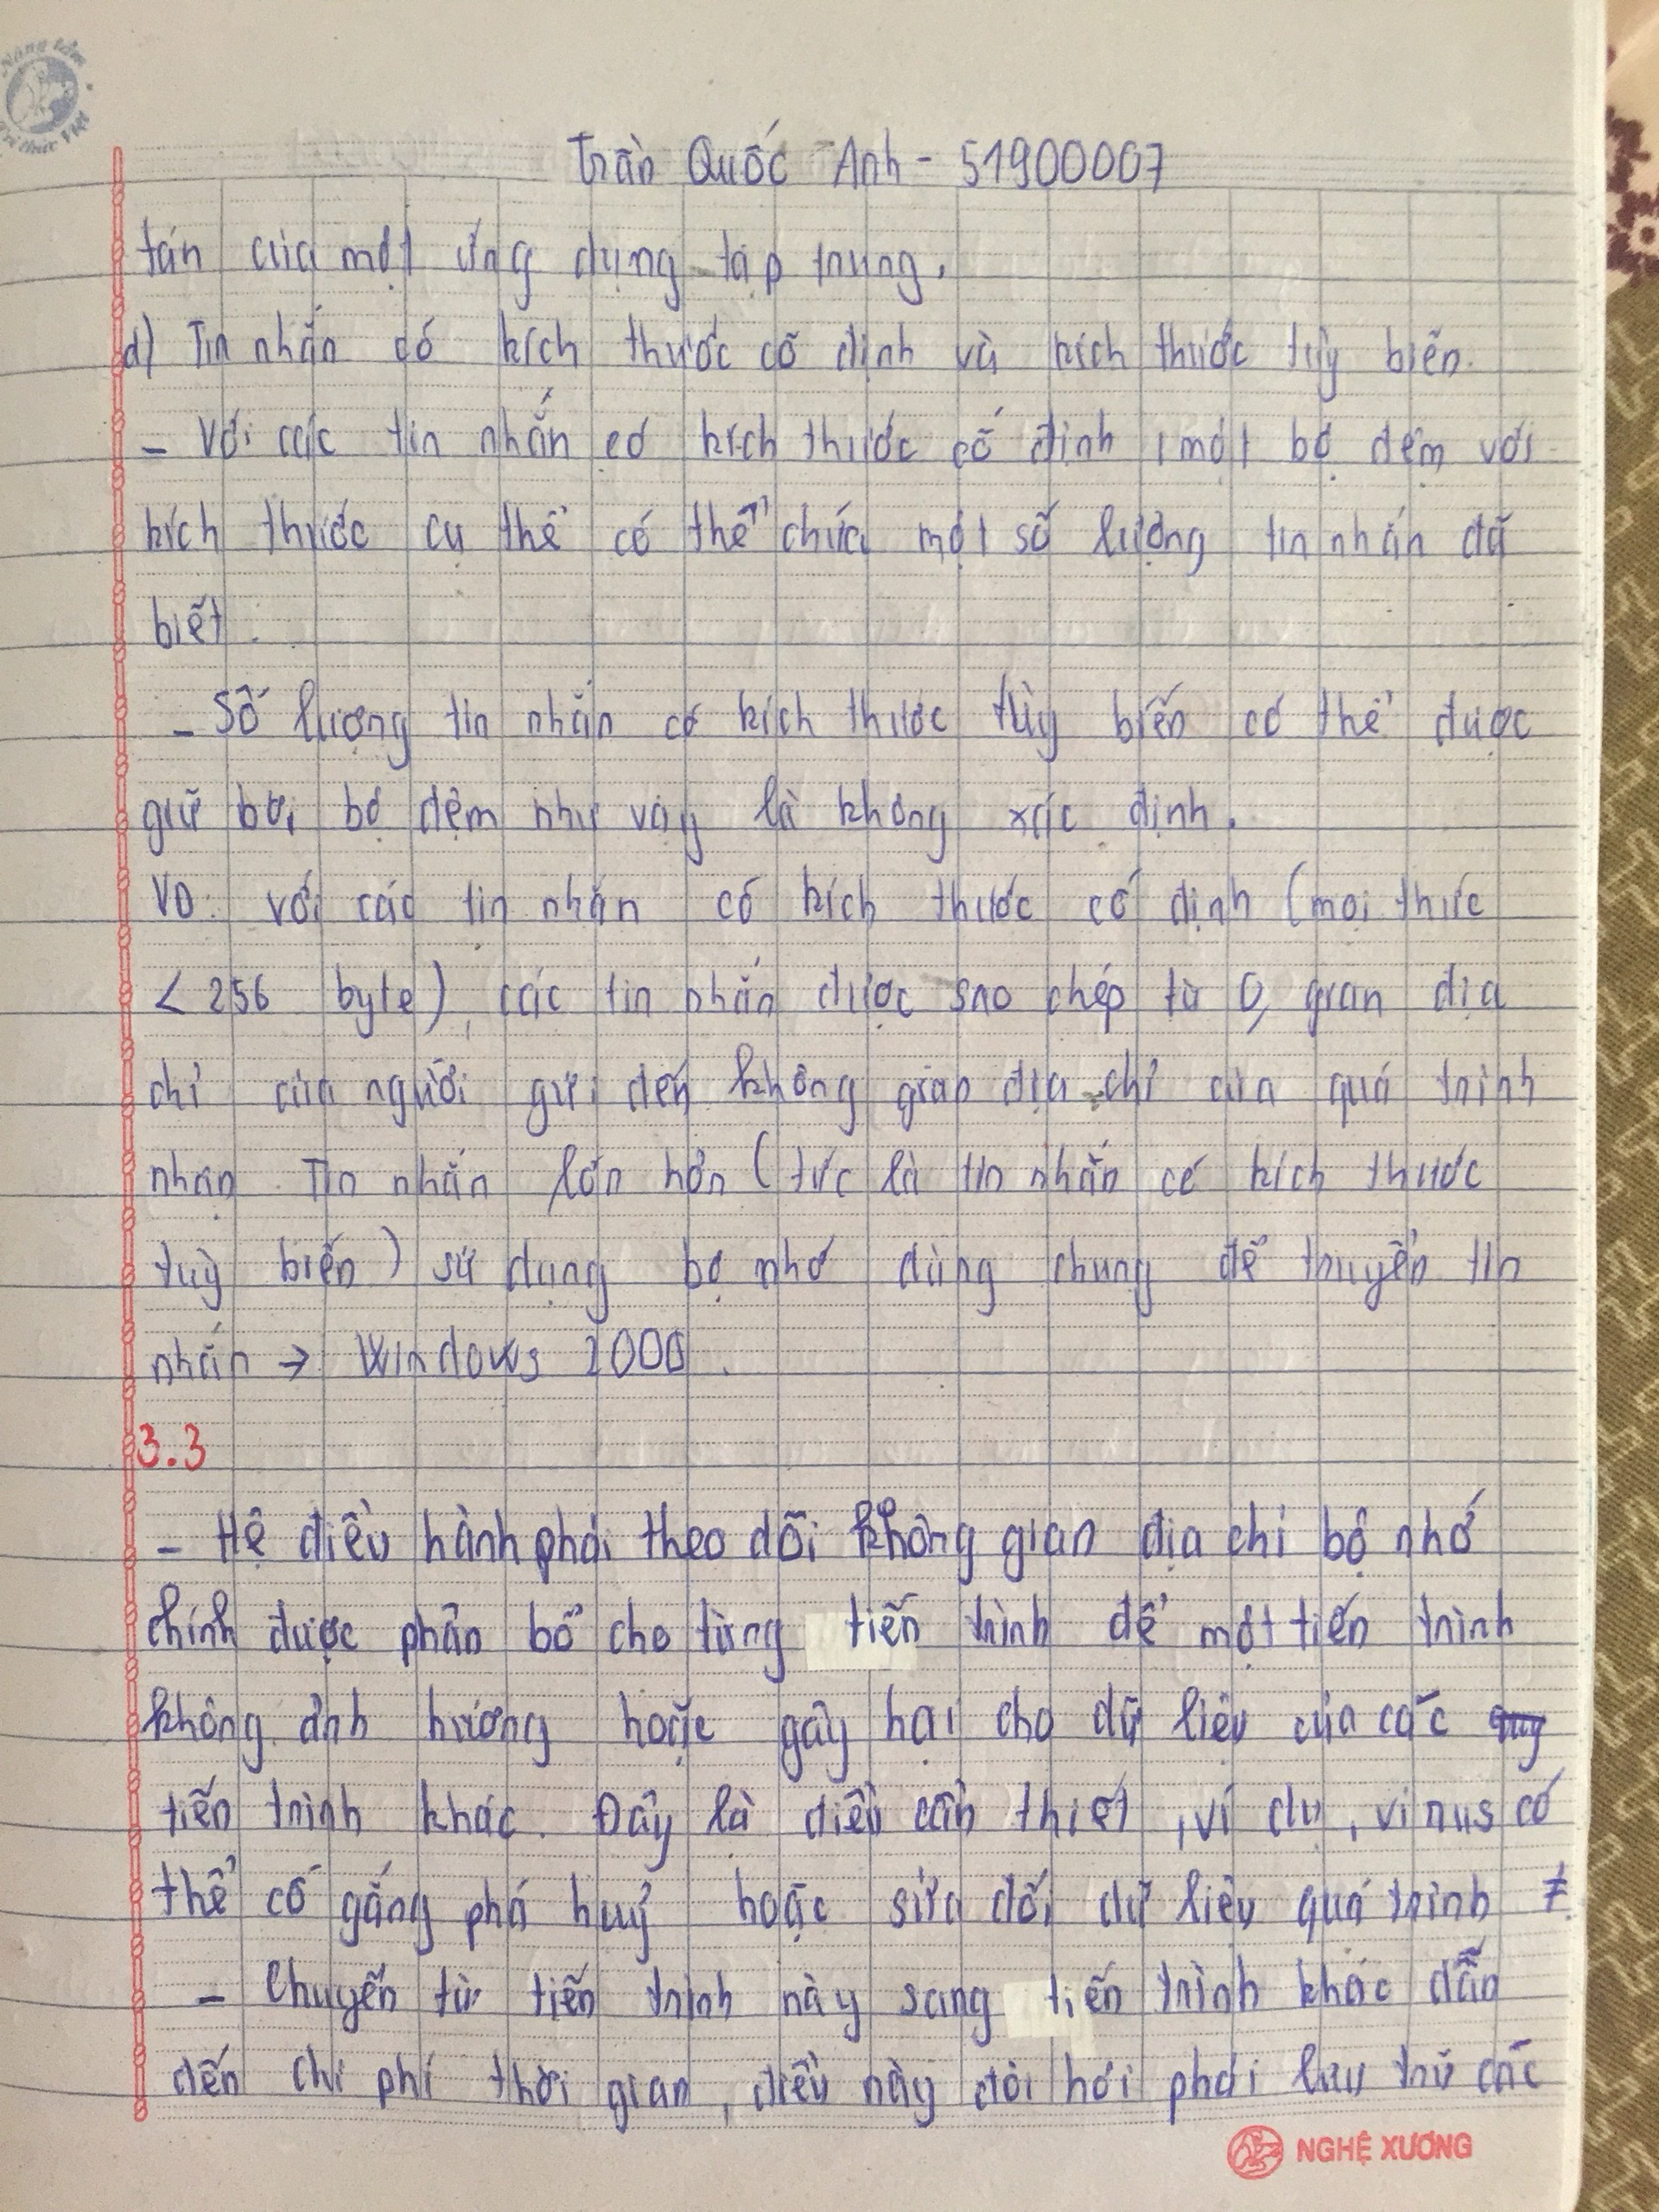 Nâng tầm
tri thức Việt
Trần Quốc Anh - 51900007
tán của một ứng dụng tập trung.
d) Tin nhắn có kích thước cố định và kích thước tùy biến.
- Với các tin nhắn có kích thước cố định, một bộ đệm với
kích thước cụ thể có thể chứa một số lượng tin nhắn đã
biết.
- Số lượng tin nhắn có kích thước tùy biến có thể được
giữ bởi bộ đệm như vậy là không xác định.
VD: với các tin nhắn có kích thước cố định (mọi thức
< 256 byte), các tin nhắn được sao chép từ gian địa
chỉ của người gửi đến không gian địa chỉ của quá trình
nhận. Tin nhắn lớn hơn (tức là tin nhắn có kích thước
tuỳ biến) sử dụng bộ nhớ dùng chung để truyền tin
nhắn → Windows 2000.
3.3
- Hệ điều hành phải theo dõi không gian địa chỉ bộ nhớ
chính được phân bổ cho từng tiến trình để một tiến trình
không ảnh hưởng hoặc gây hại cho dữ liệu của các
tiến trình khác. Đây là điều cần thiết, ví dụ, virus có
thể cố gắng phá huỷ hoặc sửa đổi dữ liệu quá trình ≠.
- Chuyển từ tiến trình này sang tiến trình khác dẫn
đến chi phí thời gian, điều này đòi hỏi phải lưu trữ các
NGHỆ XƯƠNG